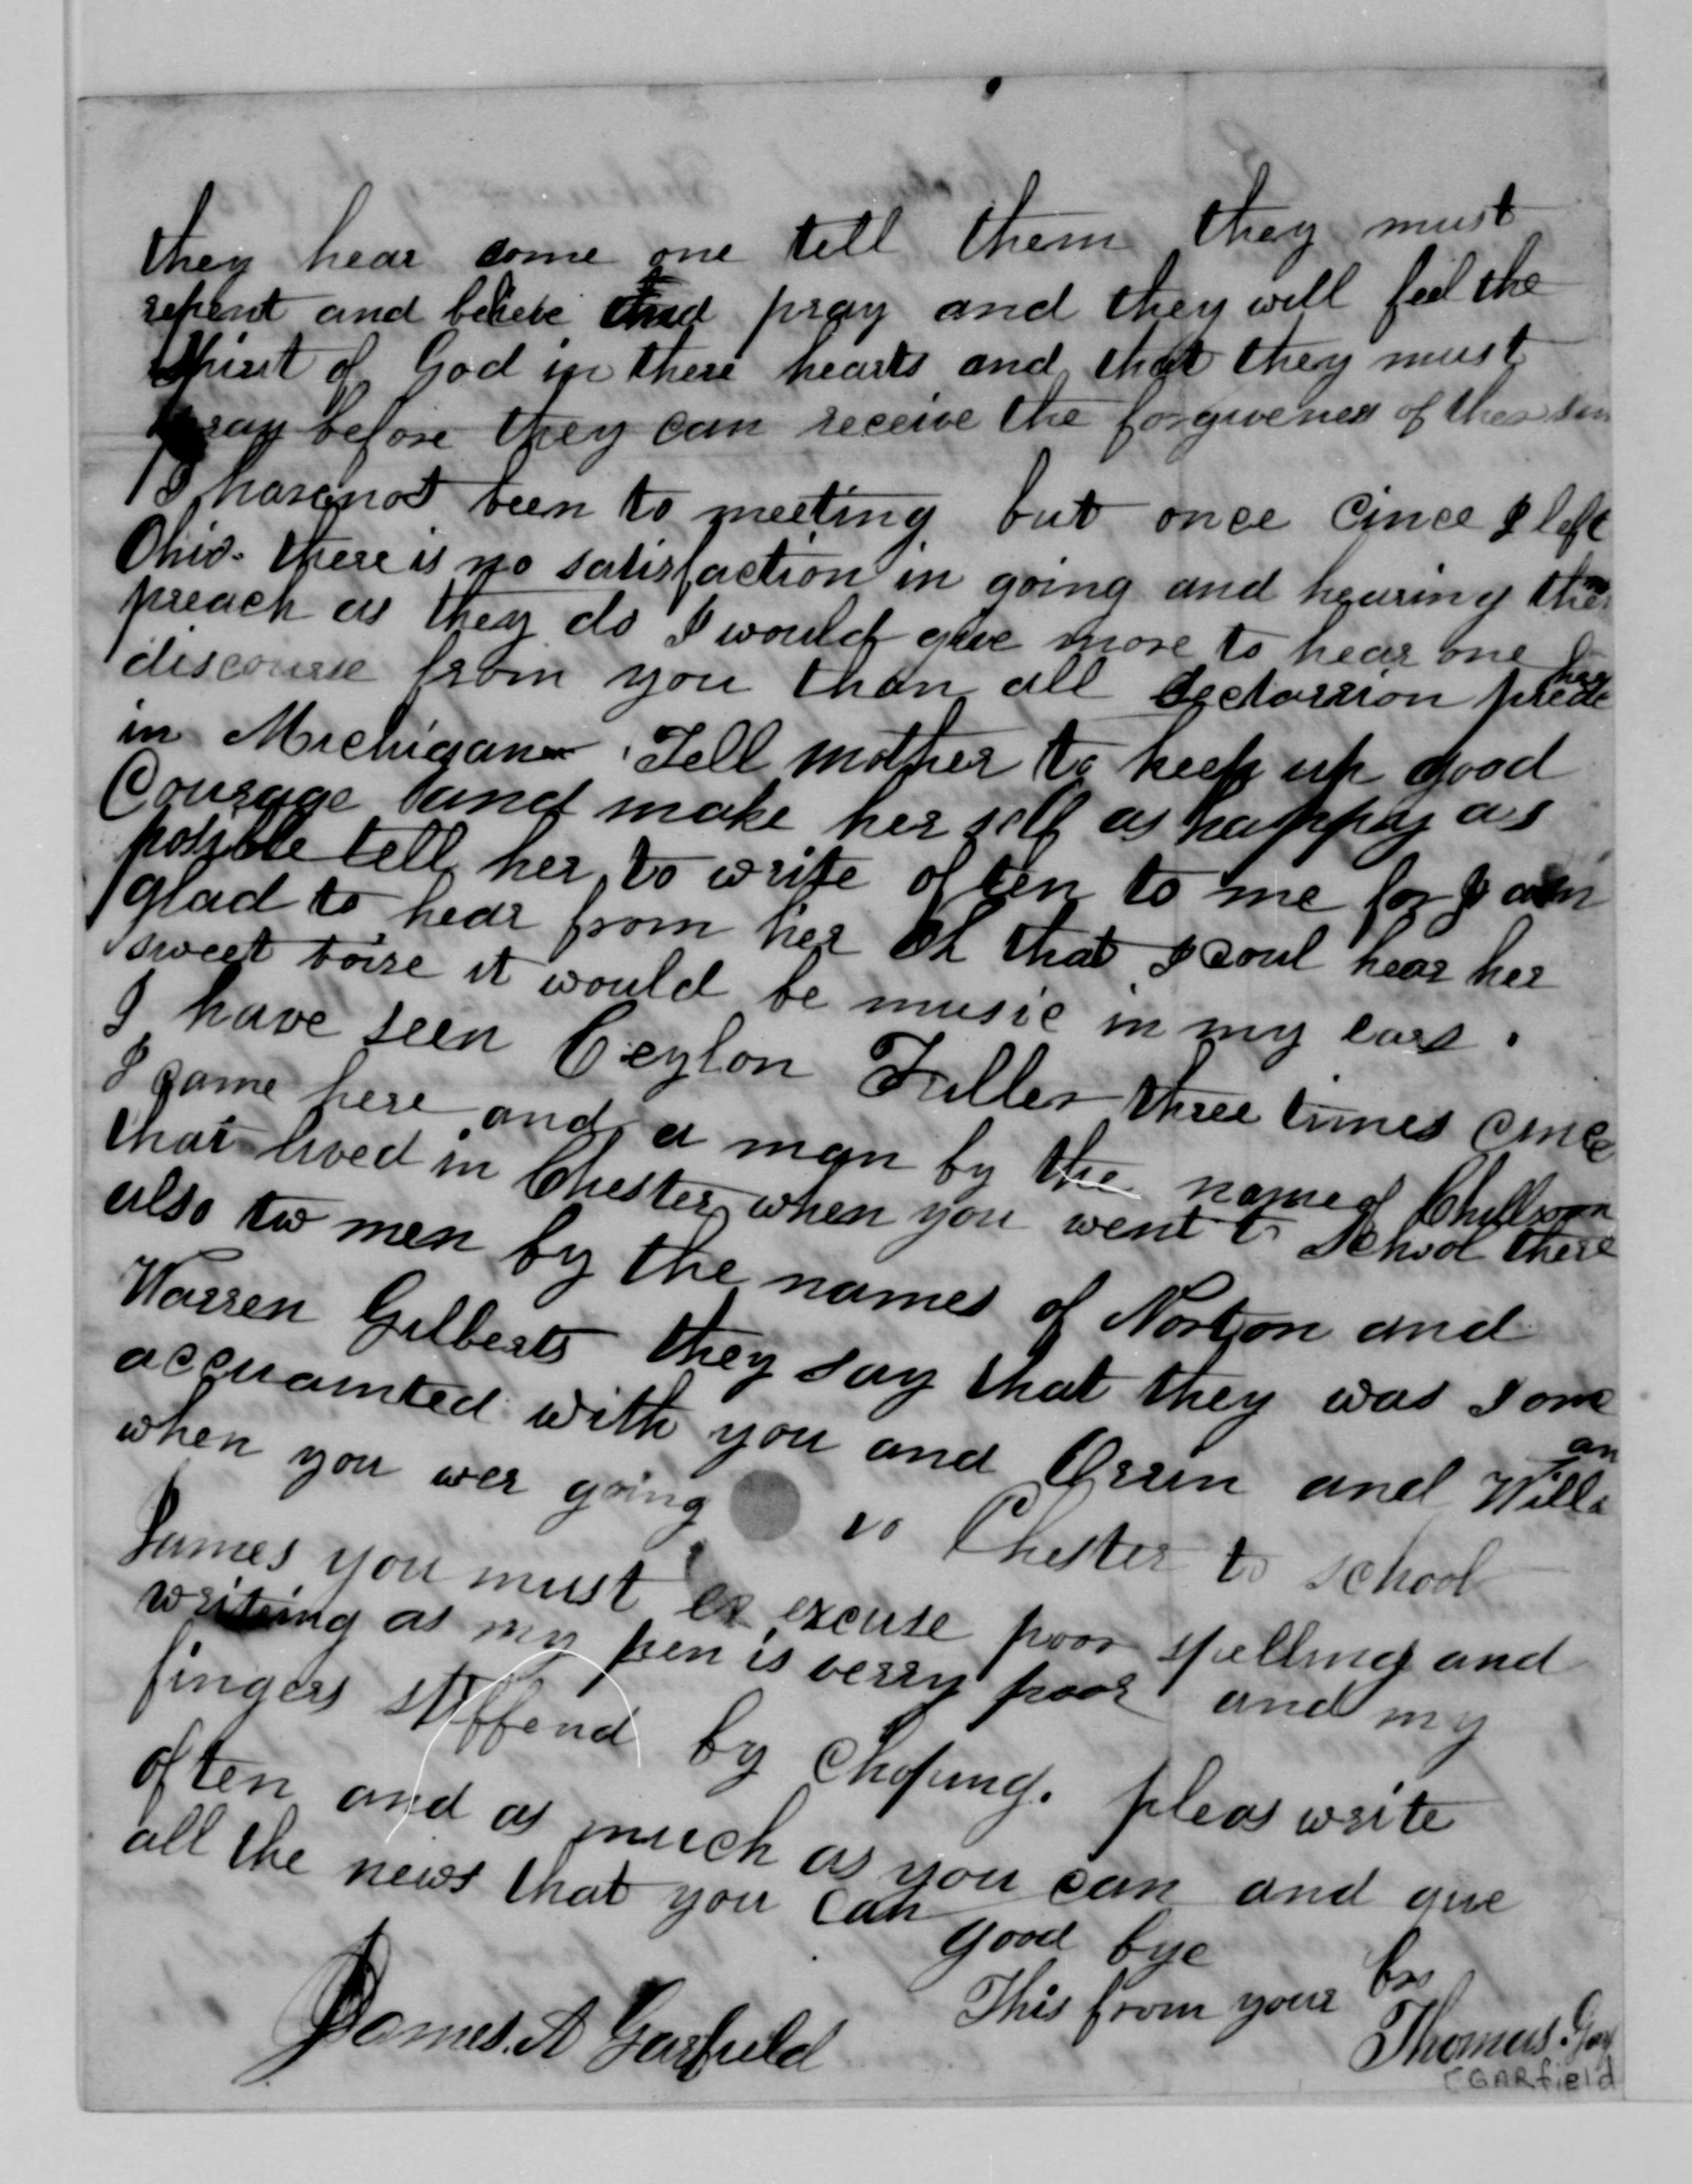 they hear some one tell them they must
repent and beleve and pray and they will feel the
Spirit of God in there hearts and that they must
pray before they can receive the forgivenes of there sin
I have not been to meeting but once cince I left
Ohio. there is no satisfaction in going and hearing them
preach as they do I would give more to hear one
discourse from you than all Sectarrion preache
in Michigan Tell mother to keep up good
Courage and make her self as happy as
posible tell her to write often to me for I am
glad to hear from her Oh that I coul hear her
sweet voise it would be music in my ears.
I have seen Ceylon Fuller three times cince
I came here and a man by the name of Chillson
that lived in Chester when you went to School there
also tw men by the names of Norton and
Warren Gilberts they say that they was some
acquainted with you and Orrin and Willian
when you wer going to Chester to school
James you must ex excuse poor spelling and
writing as my pen is verry poor and my
fingers stiffend by choping. pleas write
often and as much as you can and give
all the news that you can
good bye
This from your bro
Thomas. Gar
[GARfield
James. A Garfield